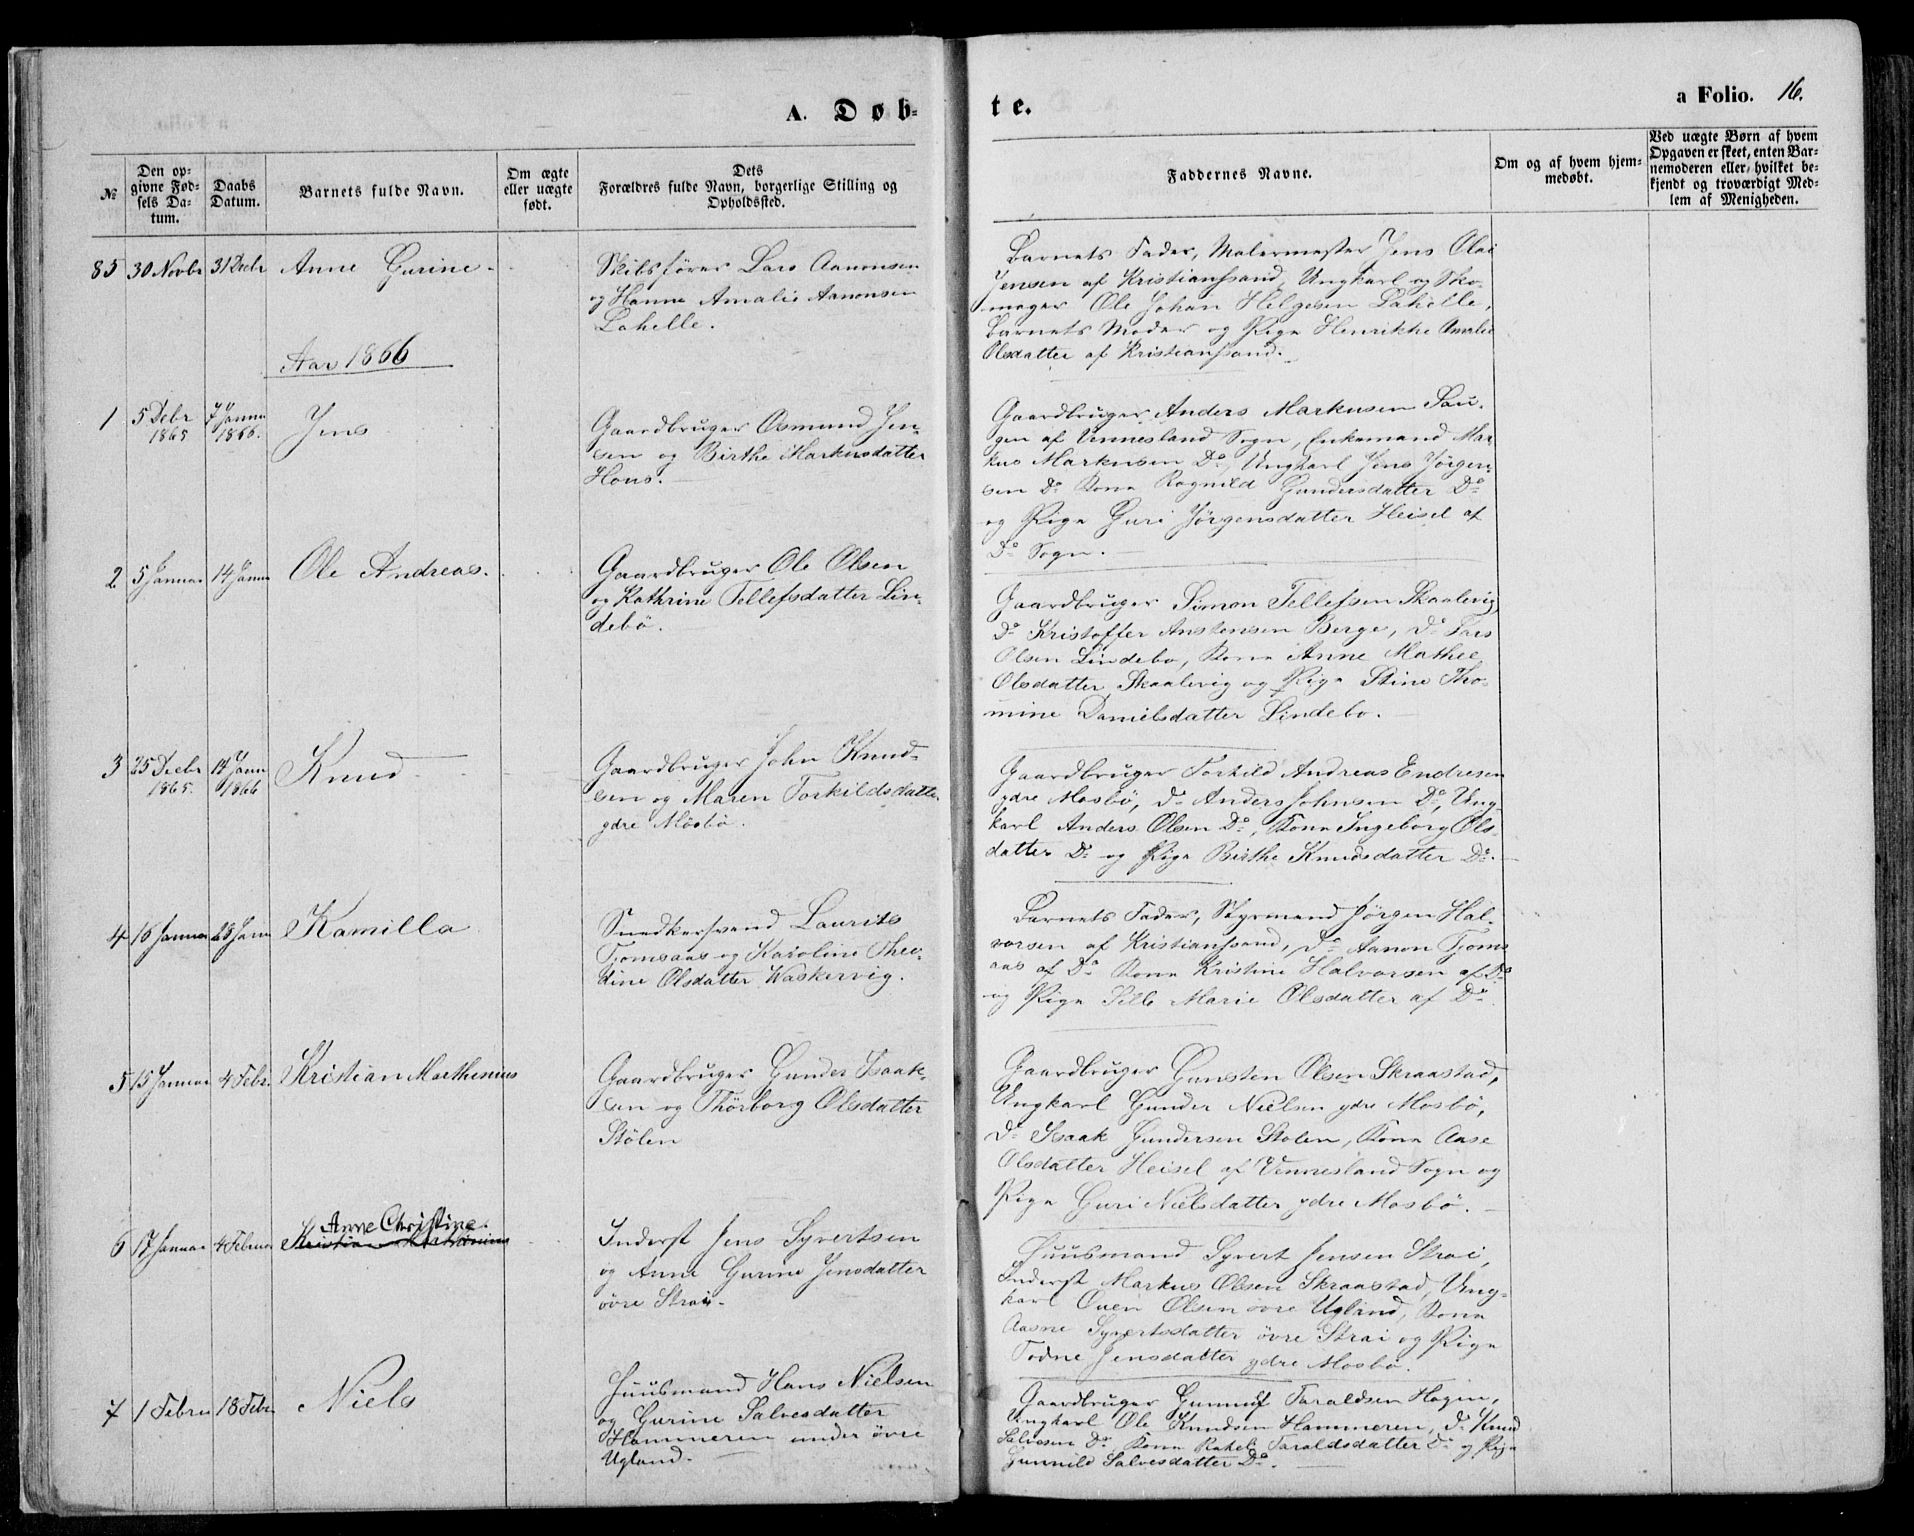 A. Døb-
te.
a Folio. 16.
№
Den op-
givne Fød-
sels Da-
tum.
Daabs
Datum.
Barnets fulde Navn.
Om ægte
eller uægte
født.
Dets
Forældres fulde Navn, borgerlige Stilling og
Opholdssted.
Faddernes Navne.
Om og af hvem hjem-
medøbt.
Ved uægte Børn af hvem
Opgaven er skeet, enten Bar-
nemoderen eller, hvilket be-
kjendt og troværdigt Med-
lem af Menigheden.
85 30 Novbr 31 Decbr Anne Gurine.
Skibsfører Lars Aanonsen
og Hanne Amalie Aanonsen
Lahelle.
Barnets Fader, Malermester Jens Olai
Jensen af Kristianssand, Ungkarl og Sko-
mager Ole Johan Helgesen Lahelle,
Barnets Moder og Pige Henrikke Amalie
Olsdatter af Kristianssand.
Aar 1866
1 5 Debr 1865 7 Janua 1866. Jens
Gaardbruger Osmund Jen-
sen og Birthe Markusdatter
Hous.
Gaardbruger Anders Markusen Sau-
gen af Vennesland Sogn, Enkemand Mar
kus Markusen Do, Ungkarl Jens Jørgen-
sen Do Kona Ragnild Gundersdatter Do
og Pige Guri Jørgensdatter Heisel af
Do Sogn.
2 5 Januar 14 Janua Ole Andreas.
Gaardbruger Ole Olsen
og Kathrine Tellefsdatter Lin-
debö.
Gaardbruger Simon Tellefsen Skaalevig
Do Kristoffer Anstensen Berge, Do Lars
Olsen Lindebo, Kona Anne Mathee
Olsdatter Skaalevig og Pige Stine Tho-
mine Danielsdatter Lindebo.
3 25 Decbr 1865. 14 Janu 1866 Knud
Gaardbruger John Knud-
sen og Maren Torkildsdatter
ydre Mösbö.
Gaardbruger Torkild Andreas Endresen
ydre Mosbö, Do Anders Johnsen Do, Ung-
karl Anders Olsen Do, Kona Ingeborg Ols-
datter Do og Pige Birthe Knudsdatter Do.
4 16 Januar 28 Janu Kamilla
Snedkersvend Laurits
Tjomsaas og Karoline Theo-
dine Olsdatter Waskervig.
Barnets Fader, Styrmand Jørgen Hal-
vorsen af Kristianssand, Do Aanon Tjoms
aas af Do Kona Kristine Halvorsen af Do
og Pige Sille Marie Olsdatter af Do
5 15 Januar 4 Febr. Kristian Marthenius
Gaardbruger Gunder Isaak-
sen og Thörborg Olsdatter
Stölen
Gaardbruger Gunsten Olsen Skraastad,
Ungkarl Gunder Nielsen ydre Mosbö,
Do Isaak Gundersen Stolen, Kona Aase
Olsdatter Heisel af Vennesland Sogn og
Pige Guri Nielsdatter ydre Mosbö.
Anne Christine.
6 17 Januar 4 Februar Kristian Marthenius
Inderst Jens Syvertsen
og Anne Gurine Jensdatter
övre Strai.
Huusmand Syvert Jensen Strai,
Inderst Markus Olsen Skraastad, Ung-
karl Ouen Olsen övre Ugland, Kona
Aasne Syvertsdatter övre Strai og Pige
Todne Jensdatter ydre Mosbö.
7 1 Febru 18 Febr. Niels
Huusmand Hans Nielsen
og Gurine Salvesdatter
Hammeren under övre
Ugland.
Gaardbruger Gunnuf Taraldsen Hagen,
Ungkarl Ole Knudsen Hammeren, Do Knud
Salvesen Do, Kona Rakel Taraldsdatter Do og Pige
Gunnild Salvesdatter Do.